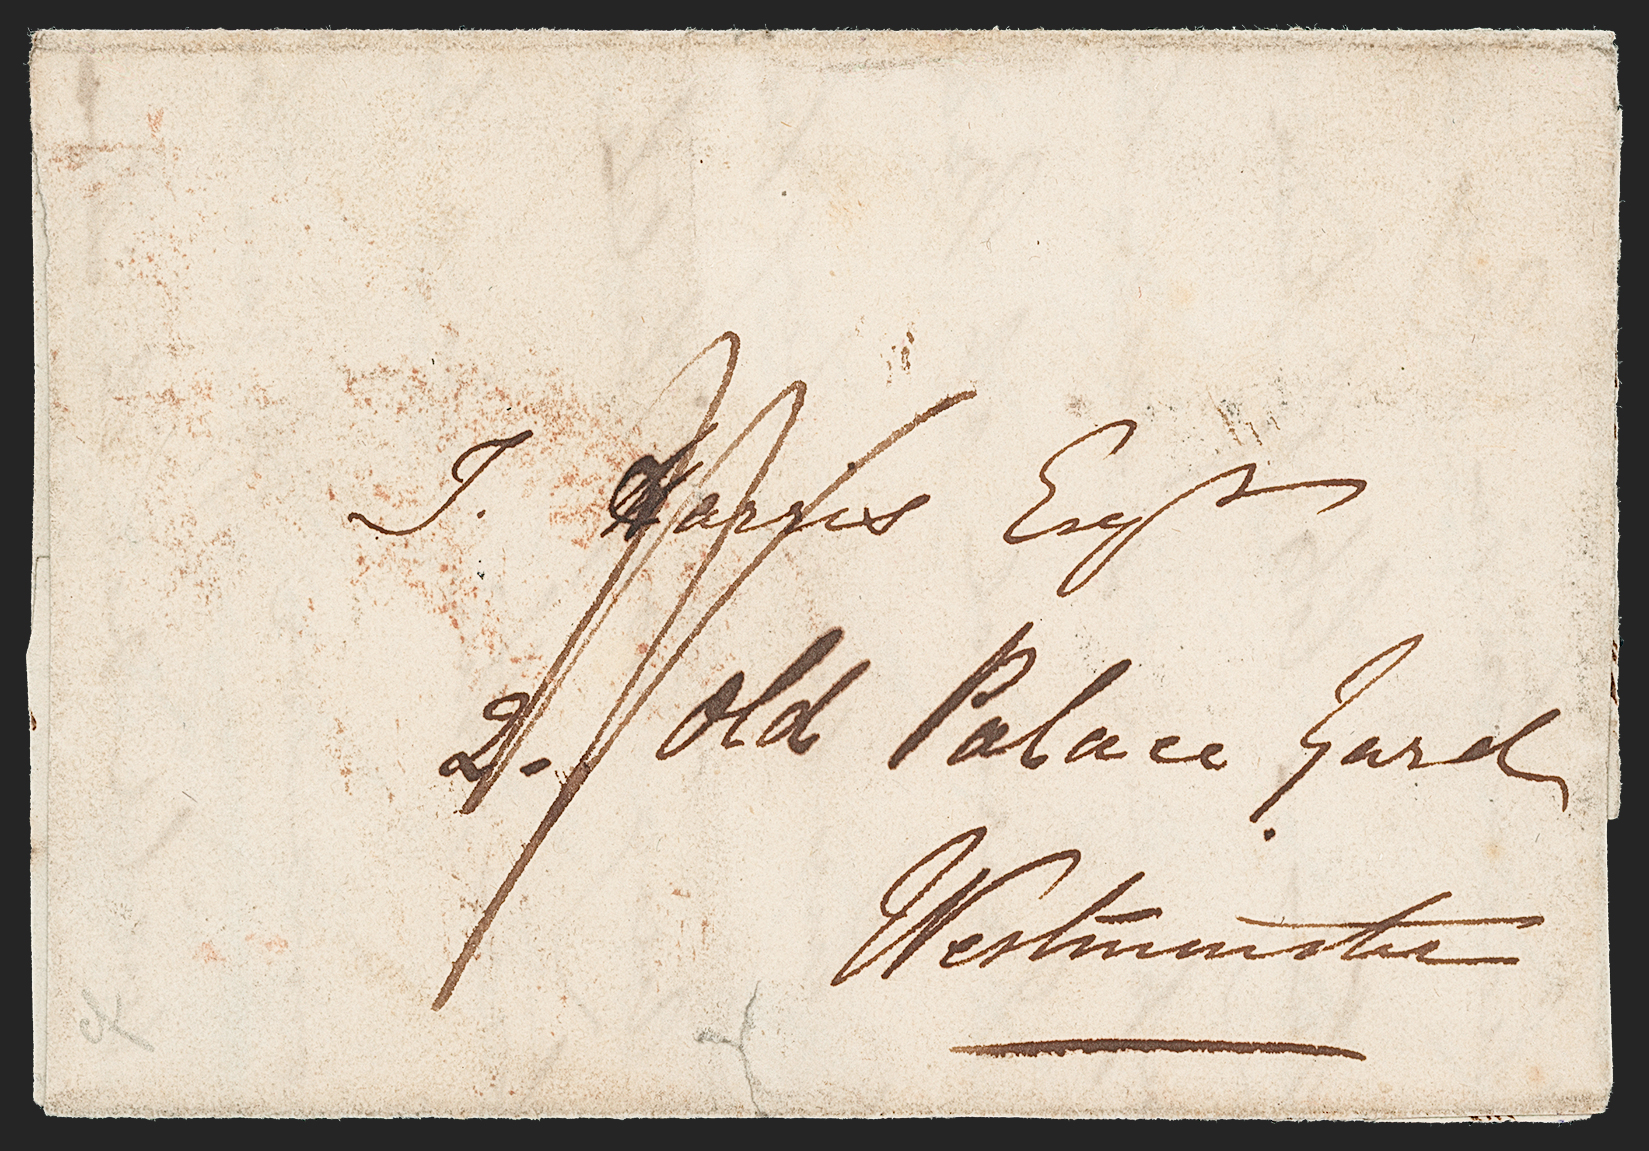 J. Harris Esqr
2. Old Palace Yard
Westminster